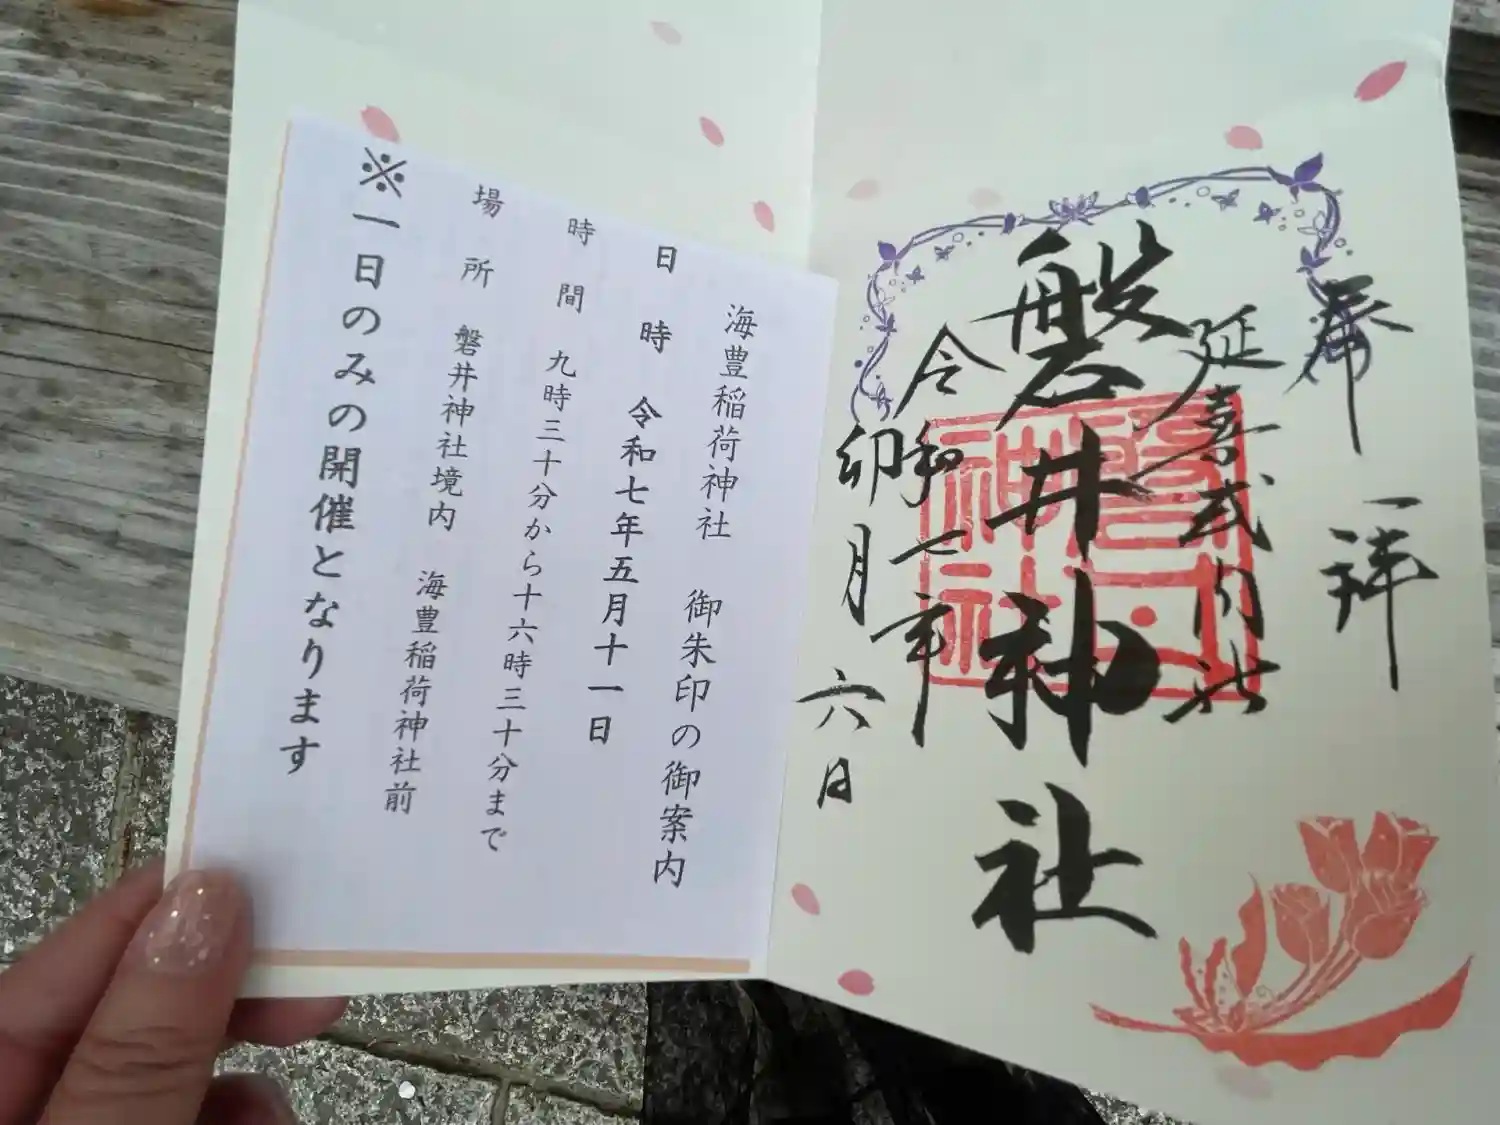 奉拝
延喜式内社
磐井神社
令和七年
卯月六日
磐井神社
海豊稲荷神社 御朱印の御案内
日時 令和七年五月十一日
時間 九時三十分から十六時三十分まで
場所 磐井神社境内 海豊稲荷神社前
※一日のみの開催となります